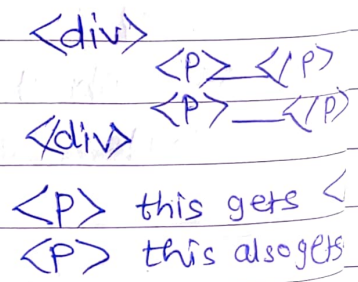 <div>
<p>__</p>
<p>__</p>
</div>
<p> this gets <
<p> this also gets